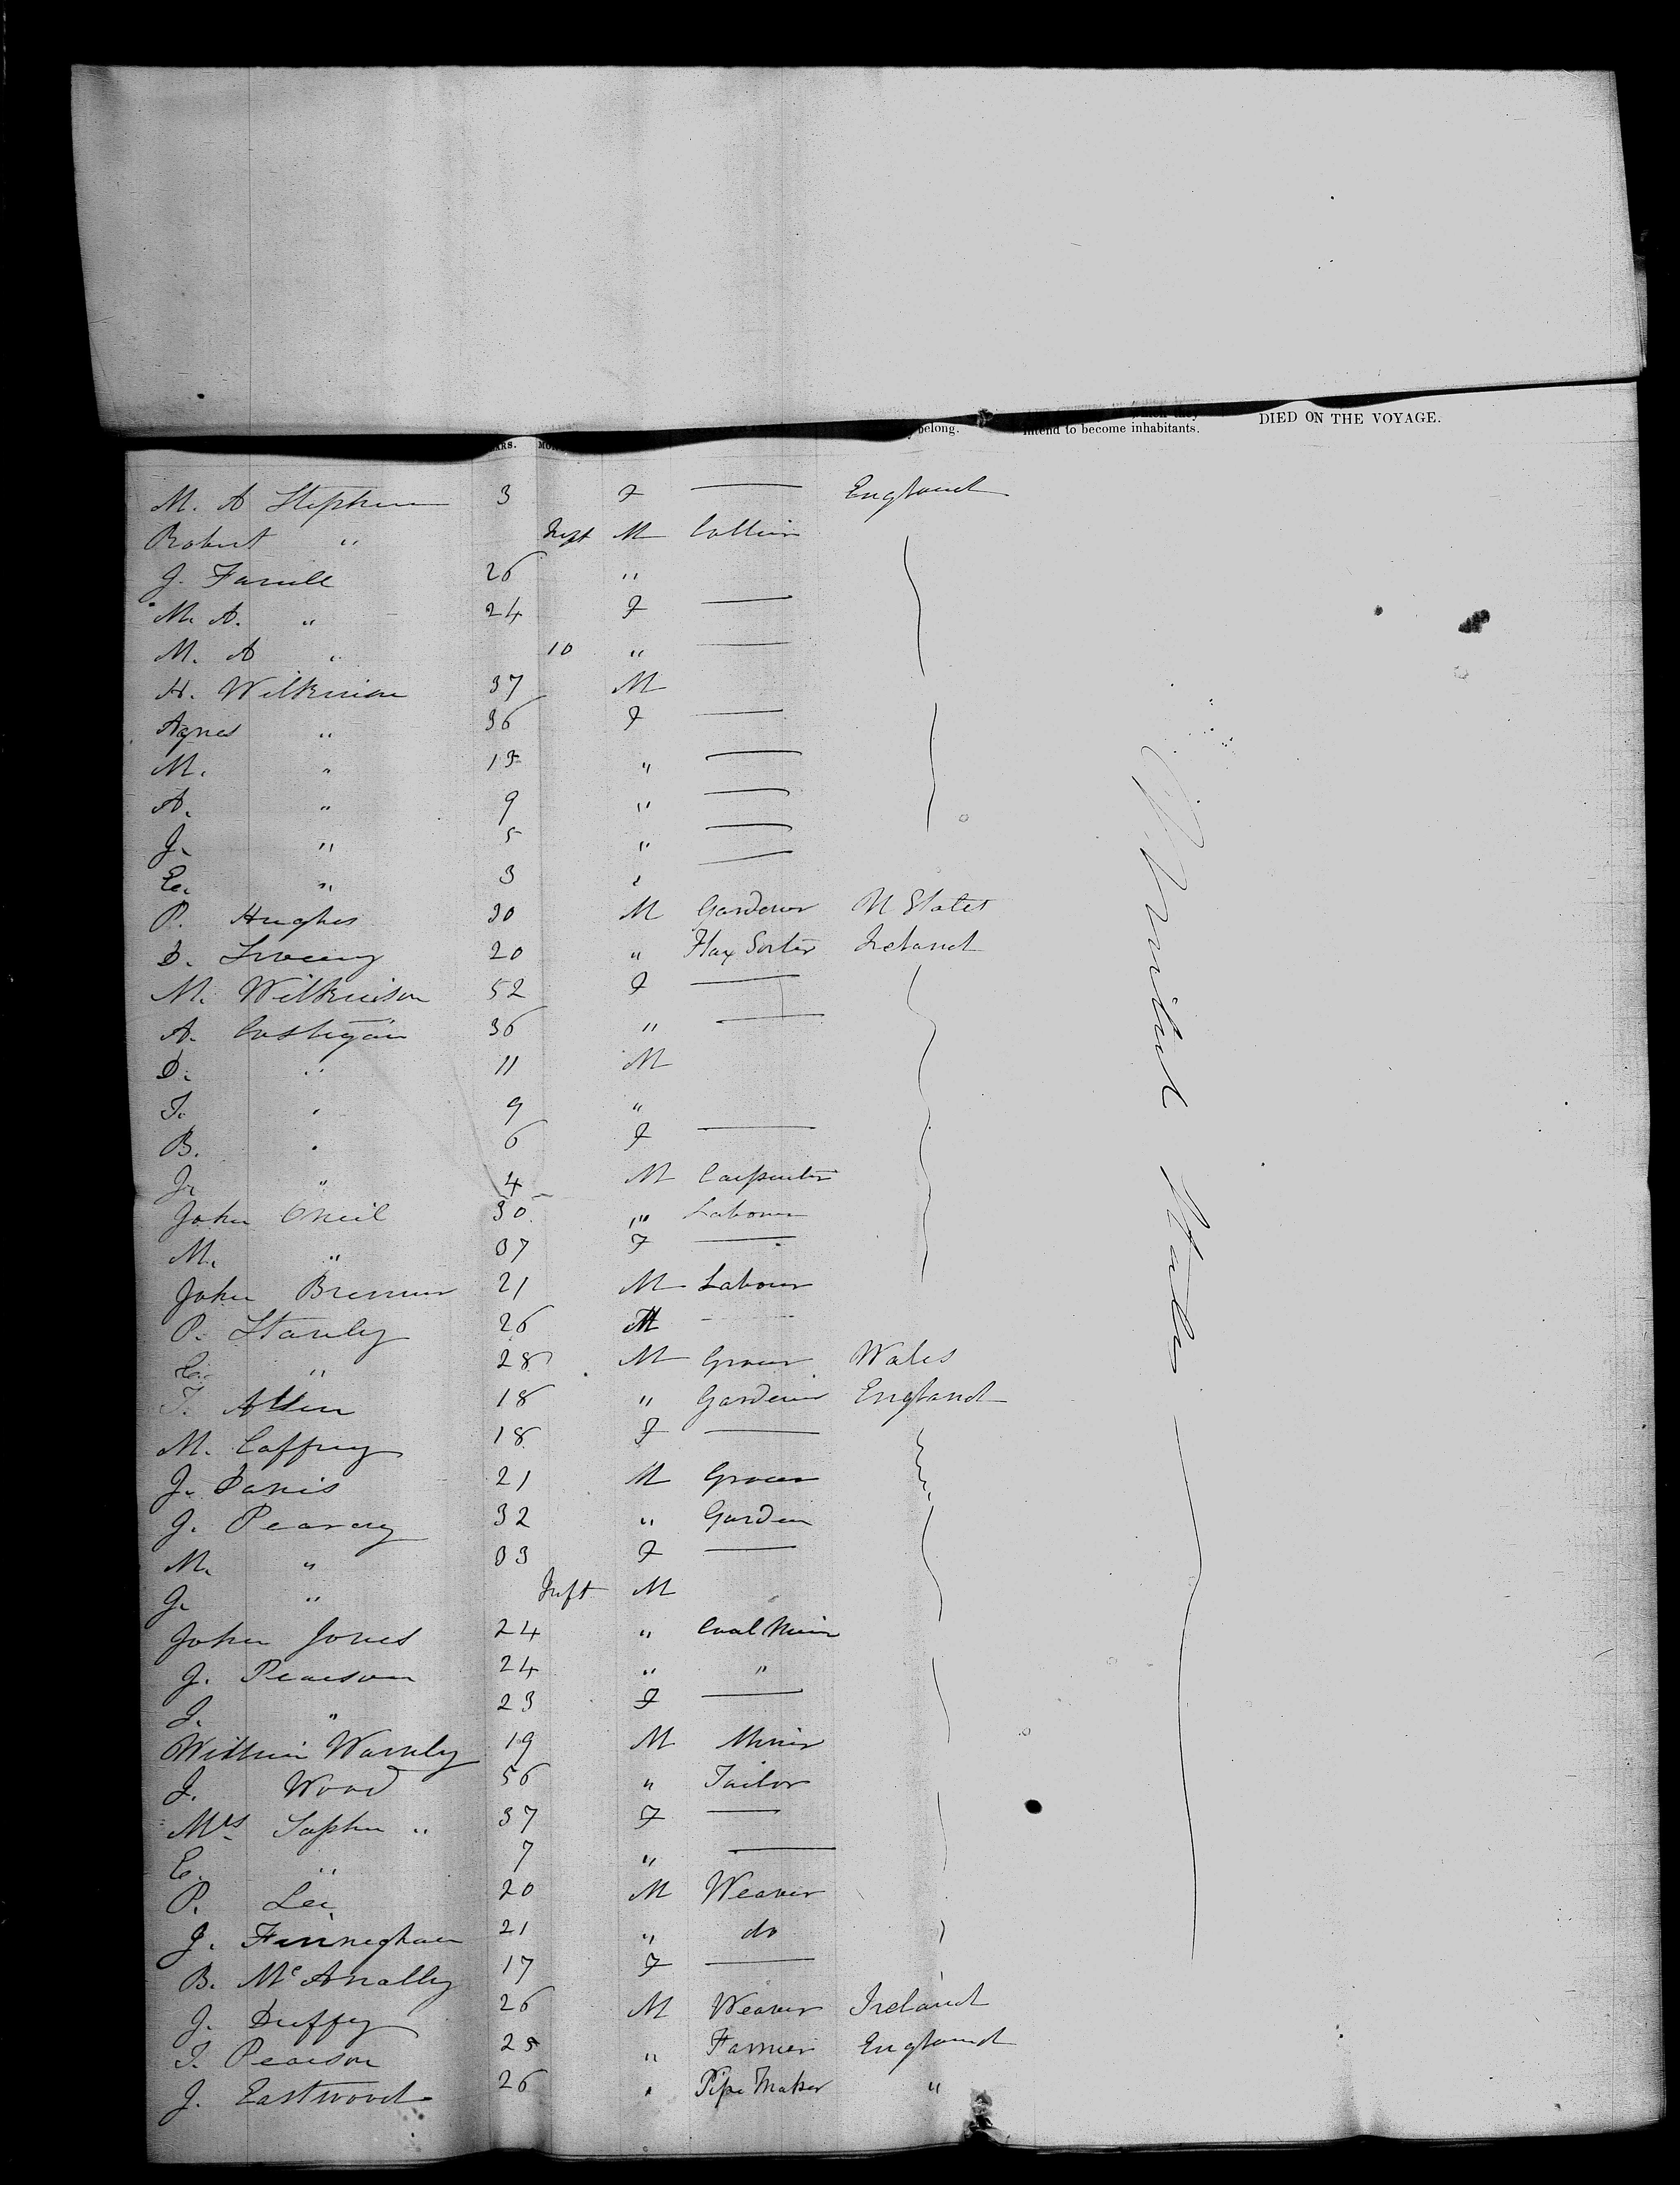 ARS. MO
belong. which they intend to become inhabitants. DIED ON THE VOYAGE.
M. A Stephen 3 F — England
Robert " Inft M Collier
J. Farrell 26 "
M. A. " 24 F —
M. A " 10 " —
H. Wilkinson 37 M
Agnes " 36 F —
M. " 13 " —
A. " 9 " —
J. " 5 " —
E. " 3 " —
P. Hughes 30 M Gardener U States
D. 20 " Flax Sorter Ireland
M. Wilkinson 52 F —
A. Costigan 36 " —
D. " 11 M
T. " 9 "
B. " 6 F —
J. " 4 M Carpenter
John Oneil 30 " Labourer
M. " 37 F —
John Brennen 21 M Labour
P. Stanley 26 M
E. " 28 M Grocer Wales
T. Allen 18 " Gardener England
M. Caffrey 18 F —
J. Davis 21 M Grocer
J. Pearcey 32 " Garden
M. " 33 F —
J. " Inft M
John Jones 24 " Coal Miner
J. Pearson 24 " "
J. " 23 F —
William Warnley 19 M Miner
J. Wood 56 " Tailor
Mrs Sophia " 37 F —
E. " 7 " —
P. Lee 20 M Weaver
J. Finneghan 21 " do
B. McAnally 17 F —
J. Duffy 26 M Weaver Ireland
T. Pearson 25 " Farmer England
J. Eastwood 26 " Pipe Maker "
United States